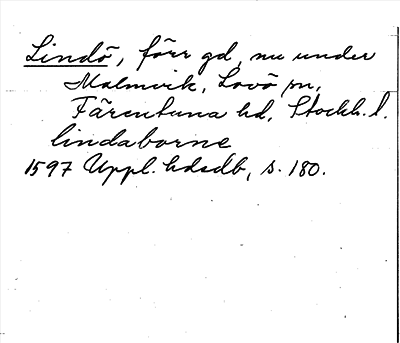 Lindö, förr gd, nu under
Malmvik, Lovö sn,
Färentuna hd, Stockh. l.
lindaborne
1597 Uppl. hdsdb, s. 180.